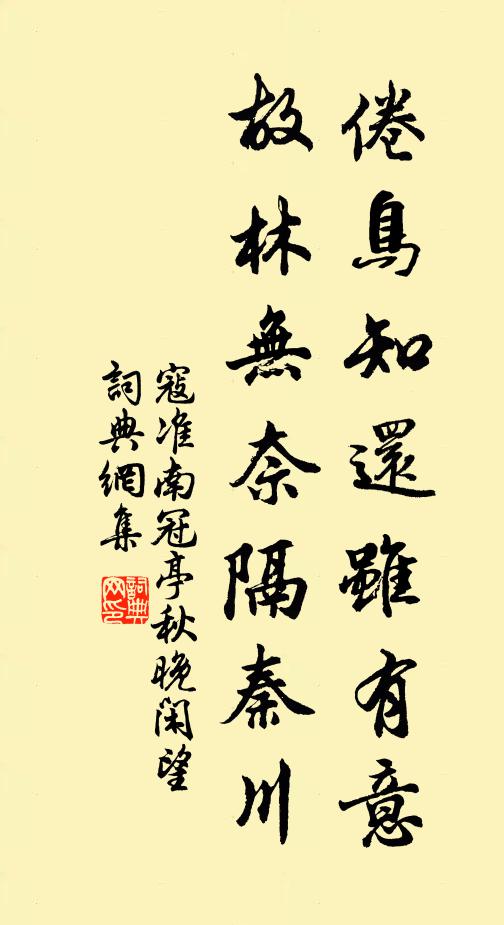 倦鳥知還雖有意
故林無奈隔秦川
寇准南冠亭秋晚闲望
詞典網集
詞典网印